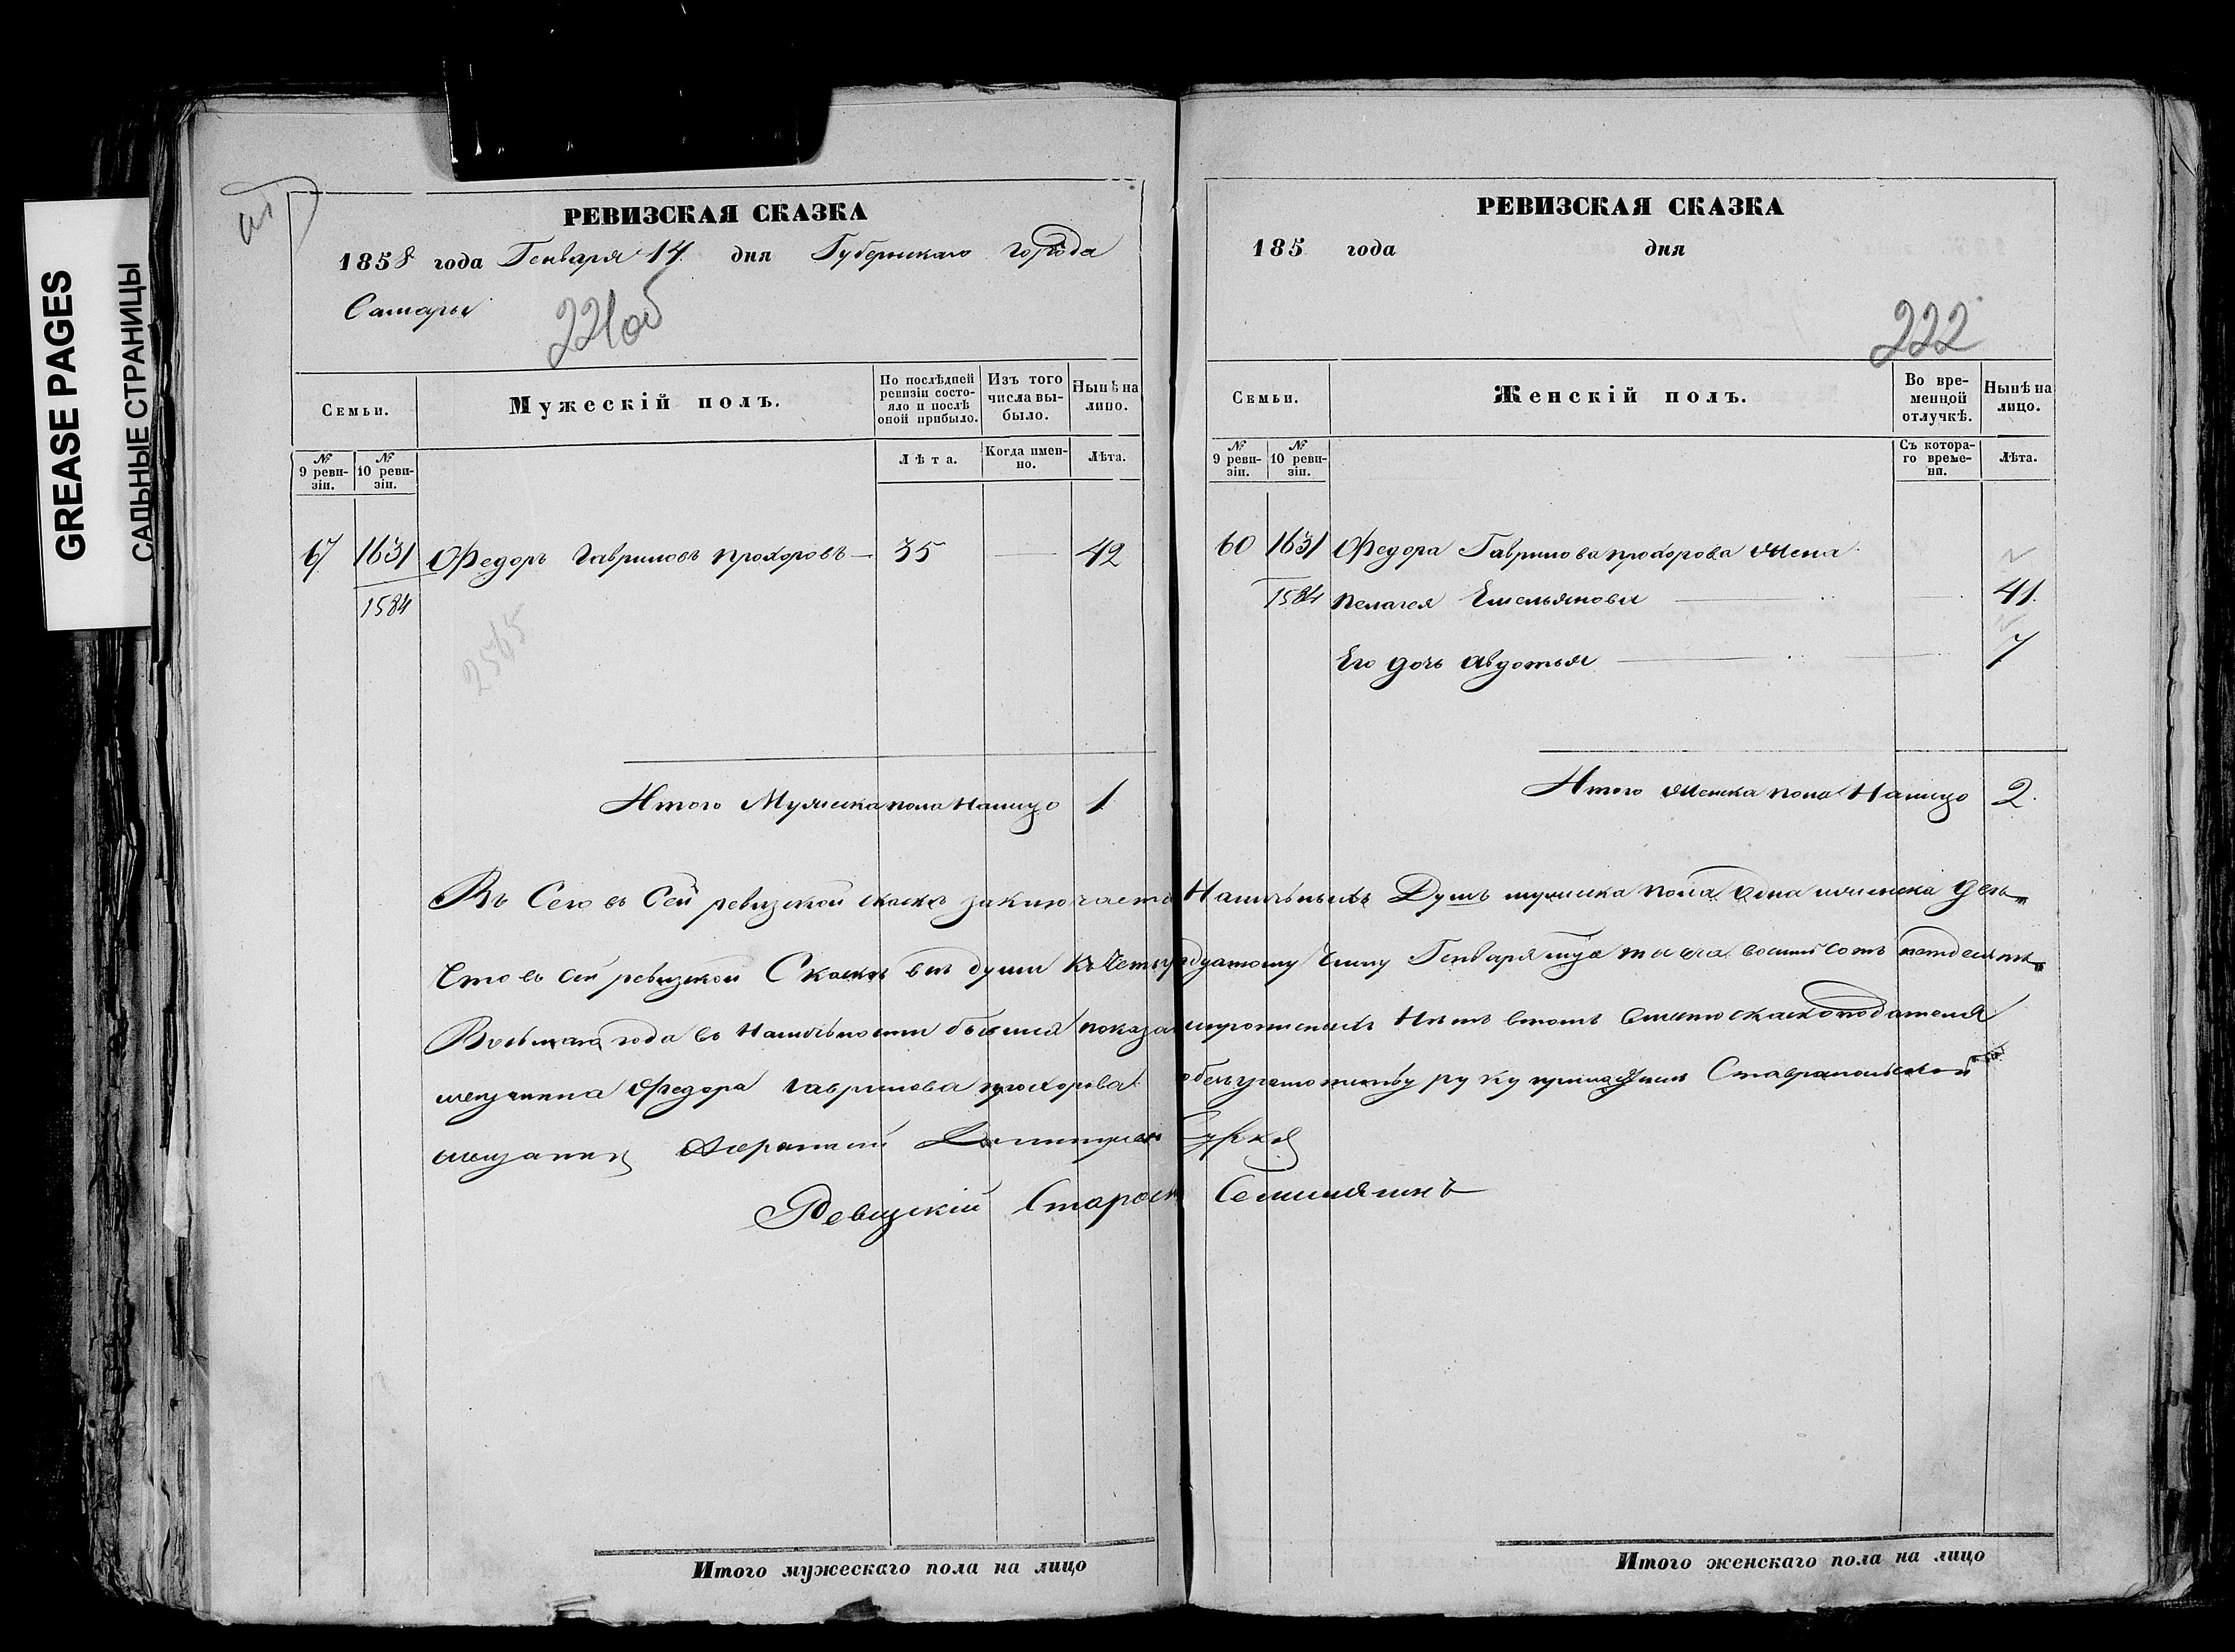 GREASE PAGES
САЛЬНЫЕ СТРАНИЦЫ
РЕВИЗСКАЯ СКАЗКА
1858 года Генваря 14 дня Губернскаго города
Самары
221об
Семьи.
Мужескій полъ.
По послѣдней ревизіи состояло и послѣ оной прибыло.
Изъ того числа выбыло.
Нынѣ на лицо.
№ 9 ревизіи.
№ 10 ревизіи.
Лѣта.
Когда именно.
Лѣта.
1631 Федоръ Гавриловъ Прохоровъ — 35 — 42
1584
2565
Итого Мужска пола Налицо 1
РЕВИЗСКАЯ СКАЗКА
185 года дня
222
Семьи.
Женскій полъ.
Во временной отлучкѣ.
Нынѣ на лицо.
№ 9 ревизіи.
№ 10 ревизіи.
Съ котораго времени.
Лѣта.
60 1631 Федора Гаврилова прохорова Жена
1584 пелагея Емельянова — 41.
Его дочь авдотья — 7
Итого женска пола Налицо 2.
Въ Сего въ Сей ревизской скаскѣ заключается Наличныхъ Душъ мужска пола одна женска двѣ
Что въ сей ревизской Скаскѣ все души къ Четырнадцатому Числу Генваря тысяча восемьсотъ петдесятъ
Восьмага года въ Наличности бывшия показаны прописныхъ Нетъ втомъ вместо скаскоподателя
мещанина Федора Гаврилова прохорова руку приложилъ Ставропольской
мещанинъ
Ревизкій Староста
Итого мужескаго пола на лицо
Итого женскаго пола на лицо